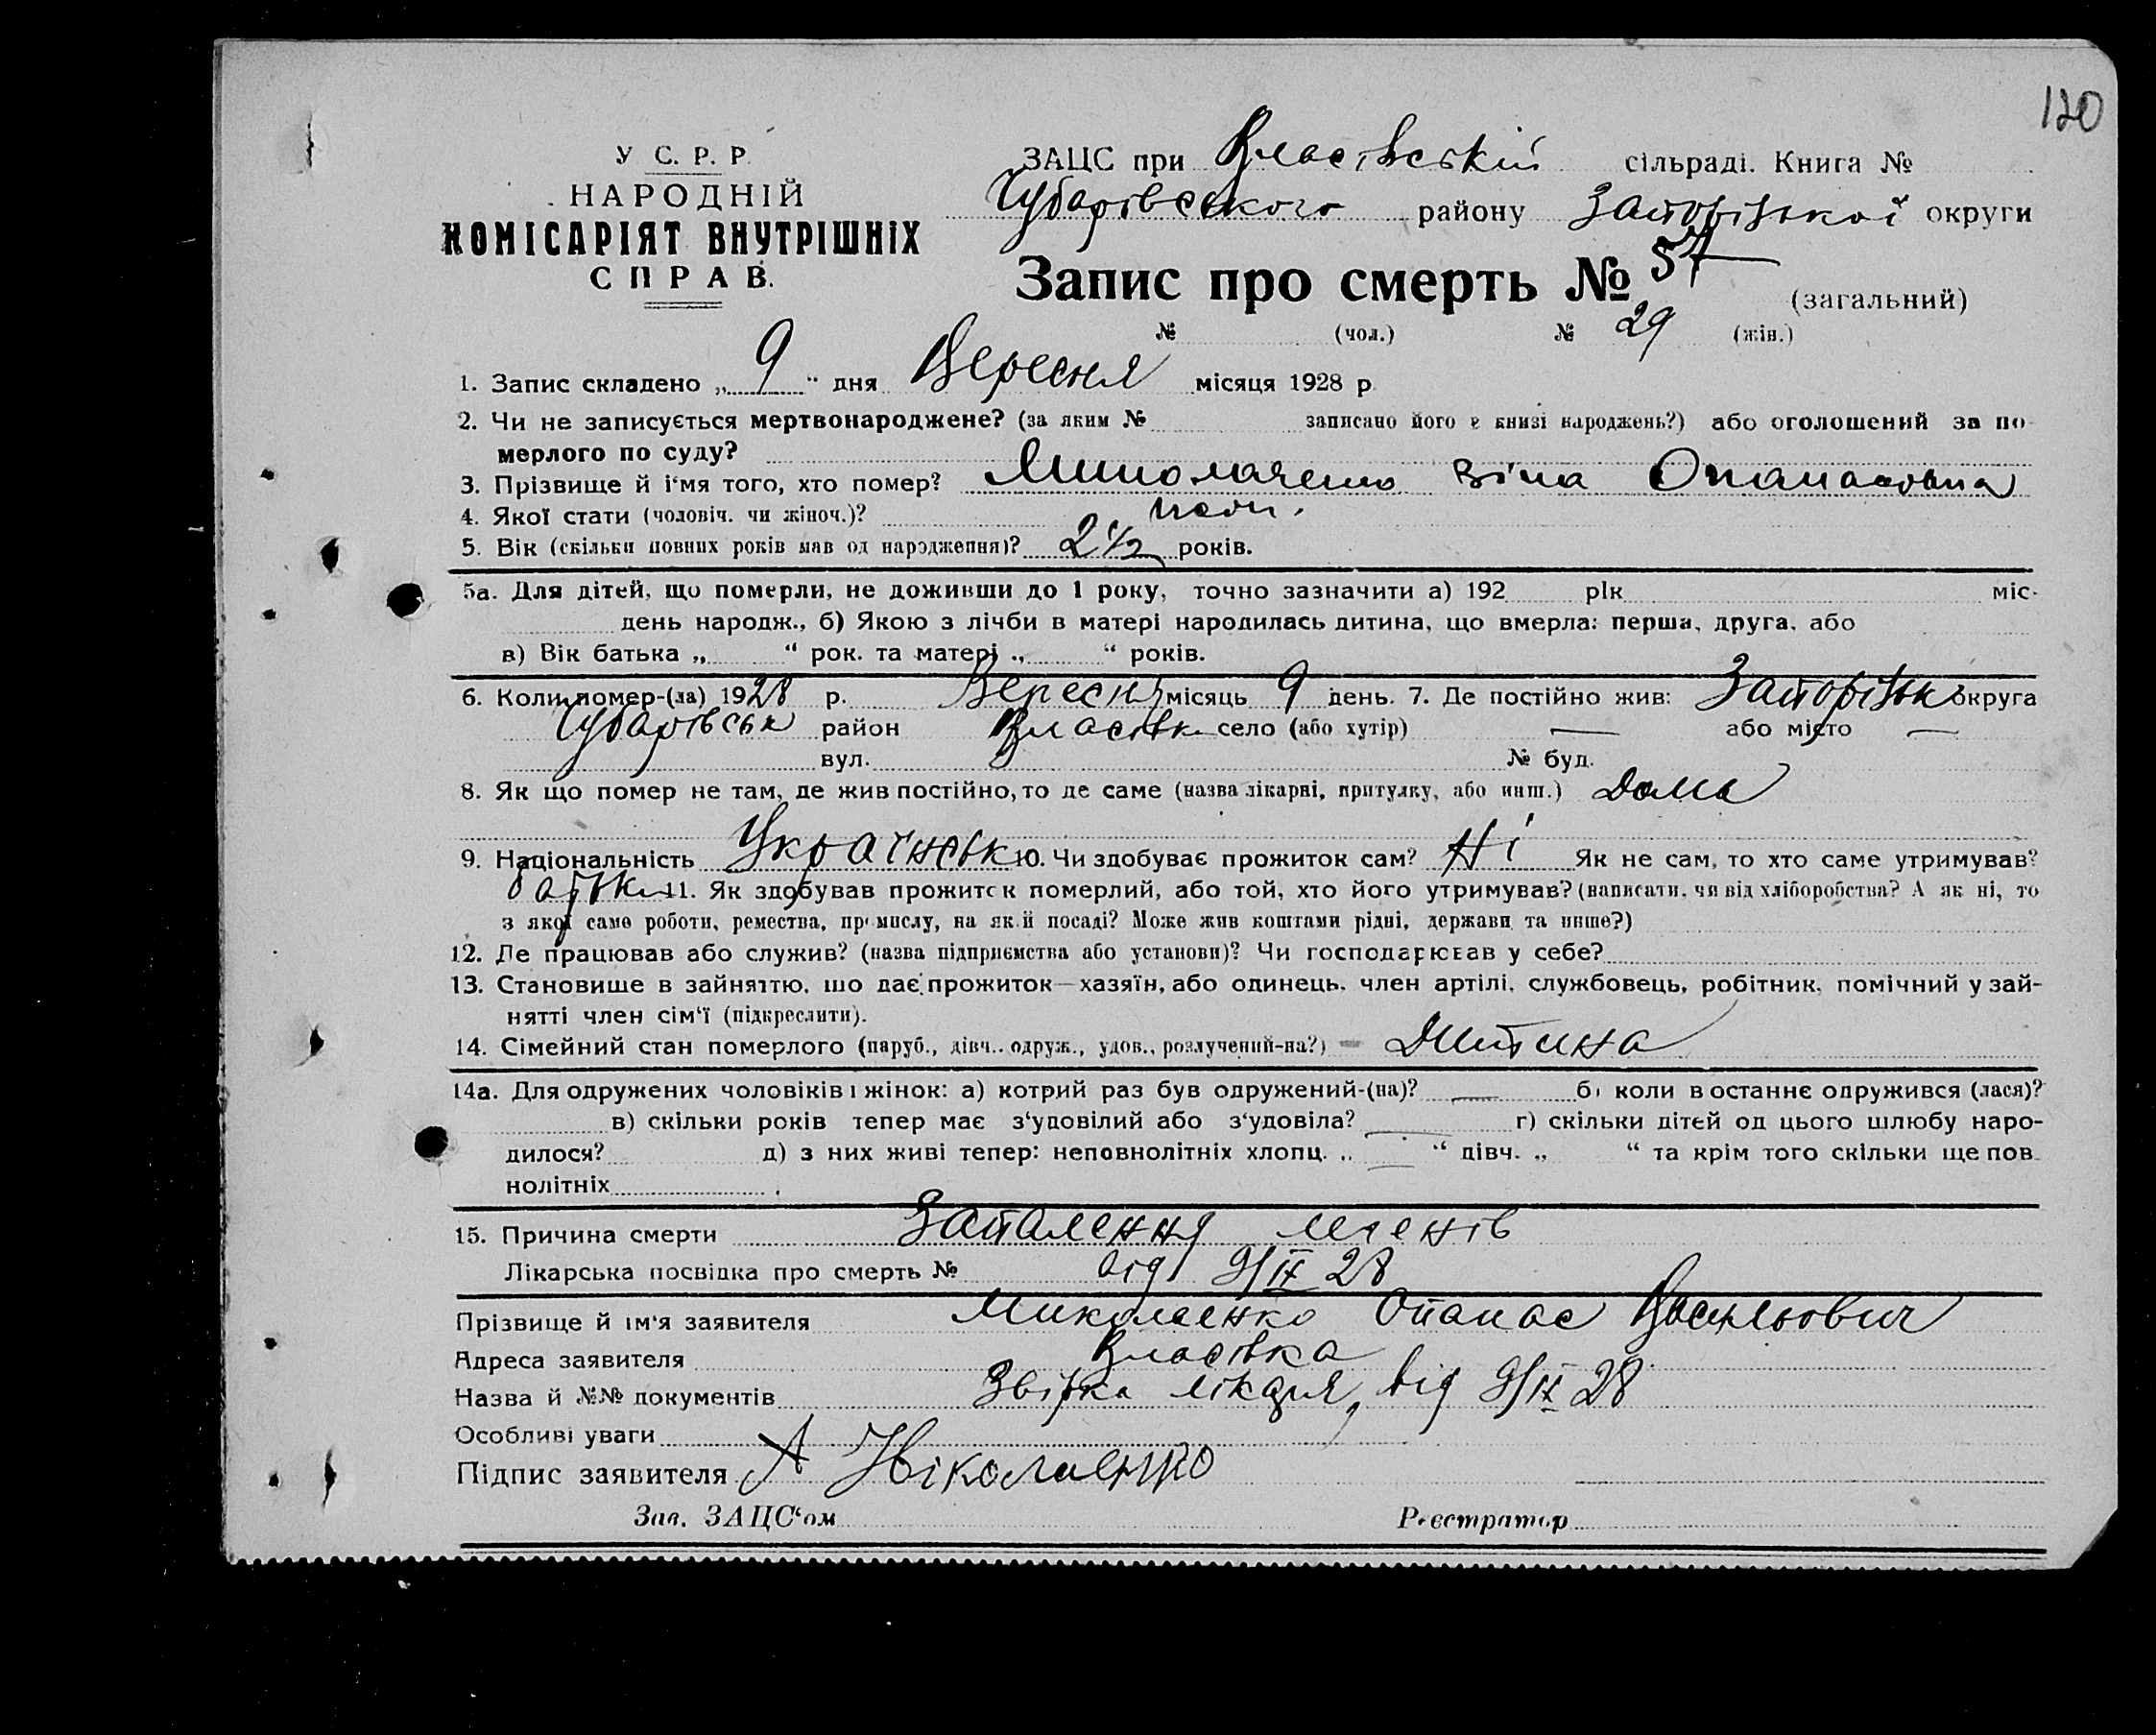 120
У С. Р. Р.
НАРОДНІЙ
КОМІСАРІЯТ ВНУТРІШНІХ
СПРАВ.
ЗАЦС при Власівській сільраді. Книга №
Чубарівського району Запорізької округи
Запис про смерть № 57 (загальний)
№ (чол.) № 29 (жін.)
1. Запис складено „ 9 “ дня Вересня місяця 1928 р
2. Чи не записується мертвонароджене? (за яким № записано його в книзі народжень?) або оголошений за по-
мерлого по суду?
3. Прізвище й і‘мя того, хто помер? Миколаенко Віна Опанасовна
4. Якої стати (чоловіч. чи жіноч.)? жон.
5. Вік (скільки повних років мав од народження)? 2 1/2 років.
5а. Для дітей, що померли, не доживши до 1 року, точно зазначити а) 192 рік міс.
день народж., б) Якою з лічби в матері народилась дитина, що вмерла: перша, друга, або
в) Вік батька „ “ рок. та матері „ “ років.
6. Коли помер-(ла) 1928 р. Вересня місяць 9 день. 7. Де постійно жив: Запорізьк округа
Чубарівськ район Власівк село (або хутір) — або місто —
вул. № буд.
8. Як що помер не там, де жив постійно, то де саме (назва лікарні, притулку, або инш.) Дома
9. Національність Українськ Ю. Чи здобуває прожиток сам? Ні Як не сам, то хто саме утримував?
батьки 11. Як здобував прожиток померлий, або той, хто його утримував? (написати, чи від хліборобства? А як ні, то
з якої саме роботи, ремества, промислу, на якій посаді? Може жив коштами рідні, держави та инше?)
12. Де працював або служив? (назва підприємства або установи)? Чи господарював у себе?
13. Становище в зайняттю, що дає прожиток—хазяїн, або одинець, член артілі, службовець, робітник, помічний у зай-
нятті член сім‘ї (підкреслити).
14. Сімейний стан померлого (паруб., дівч., одруж., удов., розлучений-на?) Дитина
14а. Для одружених чоловіків і жінок: а) котрий раз був одружений-(на)? — б) коли в останнє одружився (лася)?
в) скільки років тепер має з‘удовілий або з‘удовіла? — г) скільки дітей од цього шлюбу наро-
дилося? д) з них живі тепер: неповнолітніх хлопц. „ — “ дівч. „ “ та крім того скільки ще пов-
нолітніх
15. Причина смерти Запалення легенів
Лікарська посвідка про смерть № від 9/IX 28
Прізвище й ім‘я заявителя Миколаенко Опанас Васильович
Адреса заявителя Власівка
Назва й №№ документів Звістка лікаря від 9/IX 28
Особливі уваги
Підпис заявителя А Ніколаенко
Зав. ЗАЦС‘ом Реєстратор